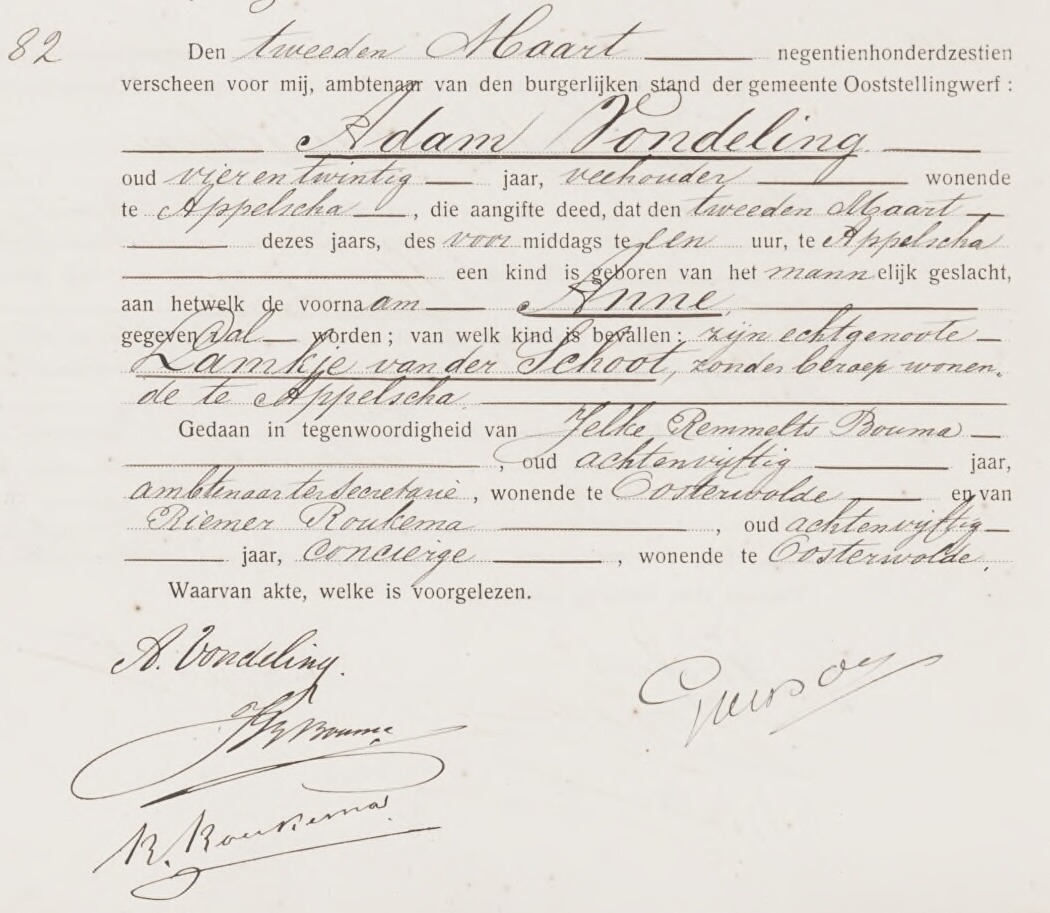 82
Den tweeden Maart negentienhonderdzestien
verscheen voor mij, ambtenaar van den burgerlijken stand der gemeente Ooststellingwerf :
Adam Vondeling.
oud vier en twintig jaar, veehouder wonende
te Appelscha, die aangifte deed, dat den tweeden Maart
dezes jaars, des voor middags te een uur, te Appelscha
een kind is geboren van het mannelijk geslacht,
aan hetwelk de voornaam Anne,
gegeven zal worden; van welk kind is bevallen: zijn echtgenoote
Lamkje van der Schoot, zonder beroep wonen-
de te Appelscha.
Gedaan in tegenwoordigheid van Jelke Remmelts Bouma
, oud achtenvijftig jaar,
ambtenaar ter secretarie, wonende te Oosterwolde en van
Riemer Roukema, oud achtenvijftig
jaar, concierge, wonende te Oosterwolde.
Waarvan akte, welke is voorgelezen.
A. Vondeling.
JR Bouma
R. Roukema